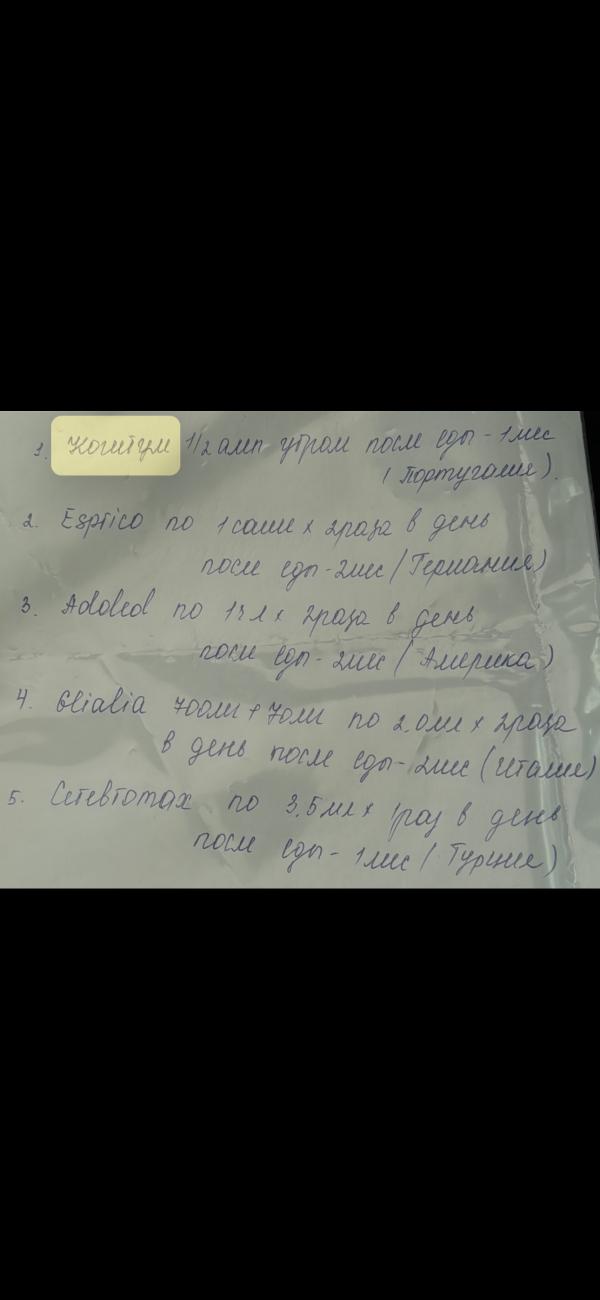 1. Когитум 1/2 амп утром после еды - 1 мес
(Португалия).
2. Esprico по 1 саше x 2 раза в день
после еды - 2 мес (Германия)
3. Addbed по 1 ч л x 2 раза в день
после еды - 2 мес (Америка)
4. Glialia 700мг + 70мг по 2.0мл x 2 раза
в день после еды - 2 мес (Италия)
5. по 3,5 мл x 1 раз в день
после еды - 1 мес (Турция)